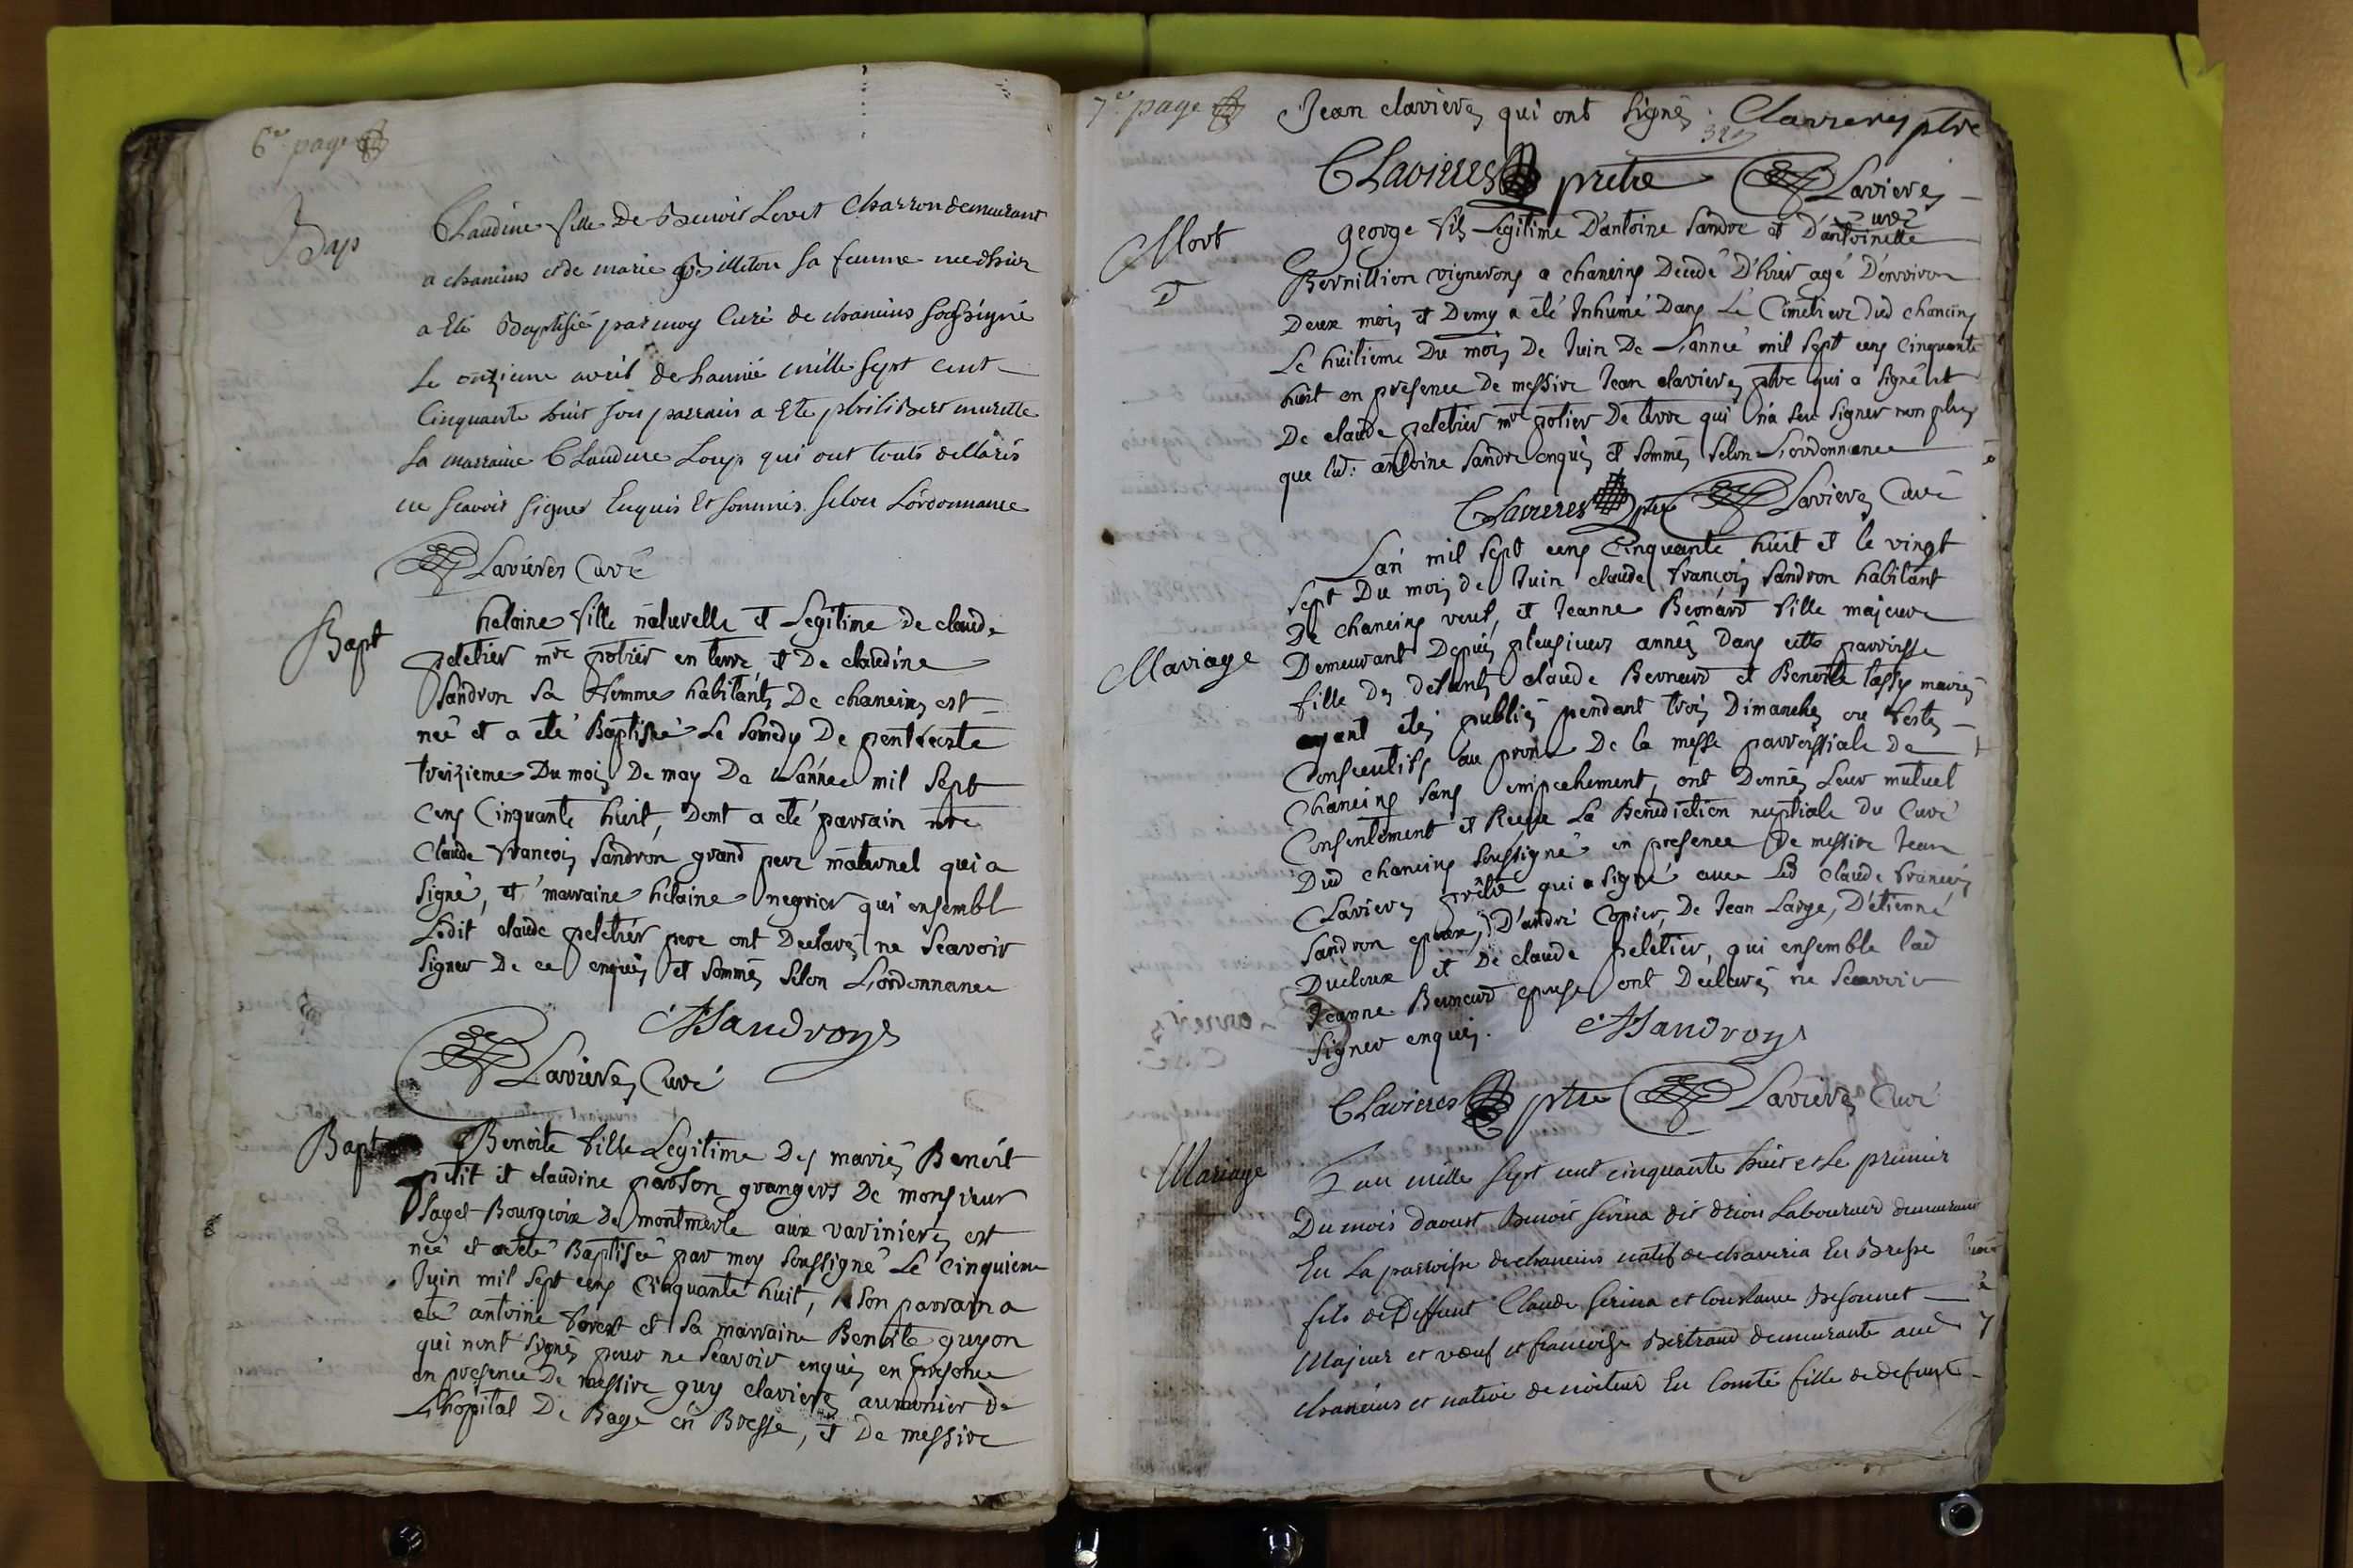 6e page
Bap
Claudine fille de Benoit Lovet Charron demeurant
a chaneins et de marie Guilleton sa femme nee d'hier
a Eté Baptisée par moy Curé de chaneins soussigné
Le onzieme avril de L'année mille sept cent
Cinquante huit son parrain a Eté philibert murette
sa marraine Claudine Loup qui ont touts dellarés
ne scavoir signer Enquis Et sommis selon L'ordonnance
Clavieres Curé
Bapt
helaine fille naturelle et Legitime de claude
peletier mre potier en terre et De claudine
Sandron sa femme habitants De chaneins est
neé et a eté Baptisée Le Samedy De pentecoste
treizieme Du mois De may De L'année mil sept
cens Cinquante huit, Dont a eté parrain mre
Claude François Sandron grand pere maternel qui a
signé, et marraine helaine negrier qui ensembl
Ledit claude peletier pere ont Declarés ne scavoir
signer De ce enquis et sommés selon L'ordonnance
Sandron
Clavieres Curé
Bapt
Benoite fille Legitime Des mariés Benoit
petit et claudine parson grangers De monsieur
Sayet Bourgeoix De montmerle aux varinieres est
neé et a eté Baptisée par moy soussigné Le cinquieme
Juin mil sept cens Cinquante huit, son parrain a
eté antoine forest et sa marraine Benoite guyon
qui nont signés pour ne scavoir enquis en presence
en presence De messire guy clavieres aumonier de
L'hôpital De Bage en Bresse, et De messire
7e page
Jean clavieres qui ont signés. Clavieres ptre
Clavieres pretre Clavieres
curé
Mort
george fils Legitime D'antoine Sandre et D'antoinette
Bernillion vignerons a chaneins Decedé D'hier agé D'environ
Deux mois et Demy a eté Inhumé Dans Le Cimetiere Dud chaneins
Le huitieme Du mois De Juin De L'anneé mil sept cens Cinquante
huit en presence De messire Jean clavieres ptre qui a signé et
De claude peletier mre potier De terre qui n'a sceu signer non plus
que led: antoine Sandre enquis et sommés selon L'ordonnance
Clavieres ptre Clavieres Curé
Mariage
L'an mil sept cens Cinquante huit et le vingt
sept Du mois de Juin claude françois Sandron habitant
De chaneins veuf, et Jeanne Bernard fille majeure
Demeurant Depuis plusieurs années Dans cette parroisse
fille Des defunts claude Bernard et Benoite tassy mariés
ayant etés publiés pendant trois Dimanches ou festes
Consecutifs au prone De la messe parroissiale De
Chaneins sans empechement, ont Donnés Leur mutuel
Consentement et Receu La Benediction nuptiale du Curé
Dud chaneins soussigné en presence De messire Jean
Clavieres prêtre qui a signé avec Led claude françois
Sandron epoux, D'andré Copier, De Jean Large, D'étienne
Ducloux et De claude peletier, qui ensemble lad
Jeanne Bernard epouse ont Declarés ne Scavoir
signer enquis. Sandron
Clavieres ptre Clavieres Curé
Mariage
L'an mille sept cent cinquante huit et le premier
Du mois d'aoust Benoit Serina dit drion Laboureur demeurant
En La parroisse de chaneins natif de chaveria En Bresse
fils de Deffunt Claude Serina et Constance Besonnet
Majeur et veuf et françoise Bertrand demeurante aud
chaneins et native de noiteur En Comté fille de defunt